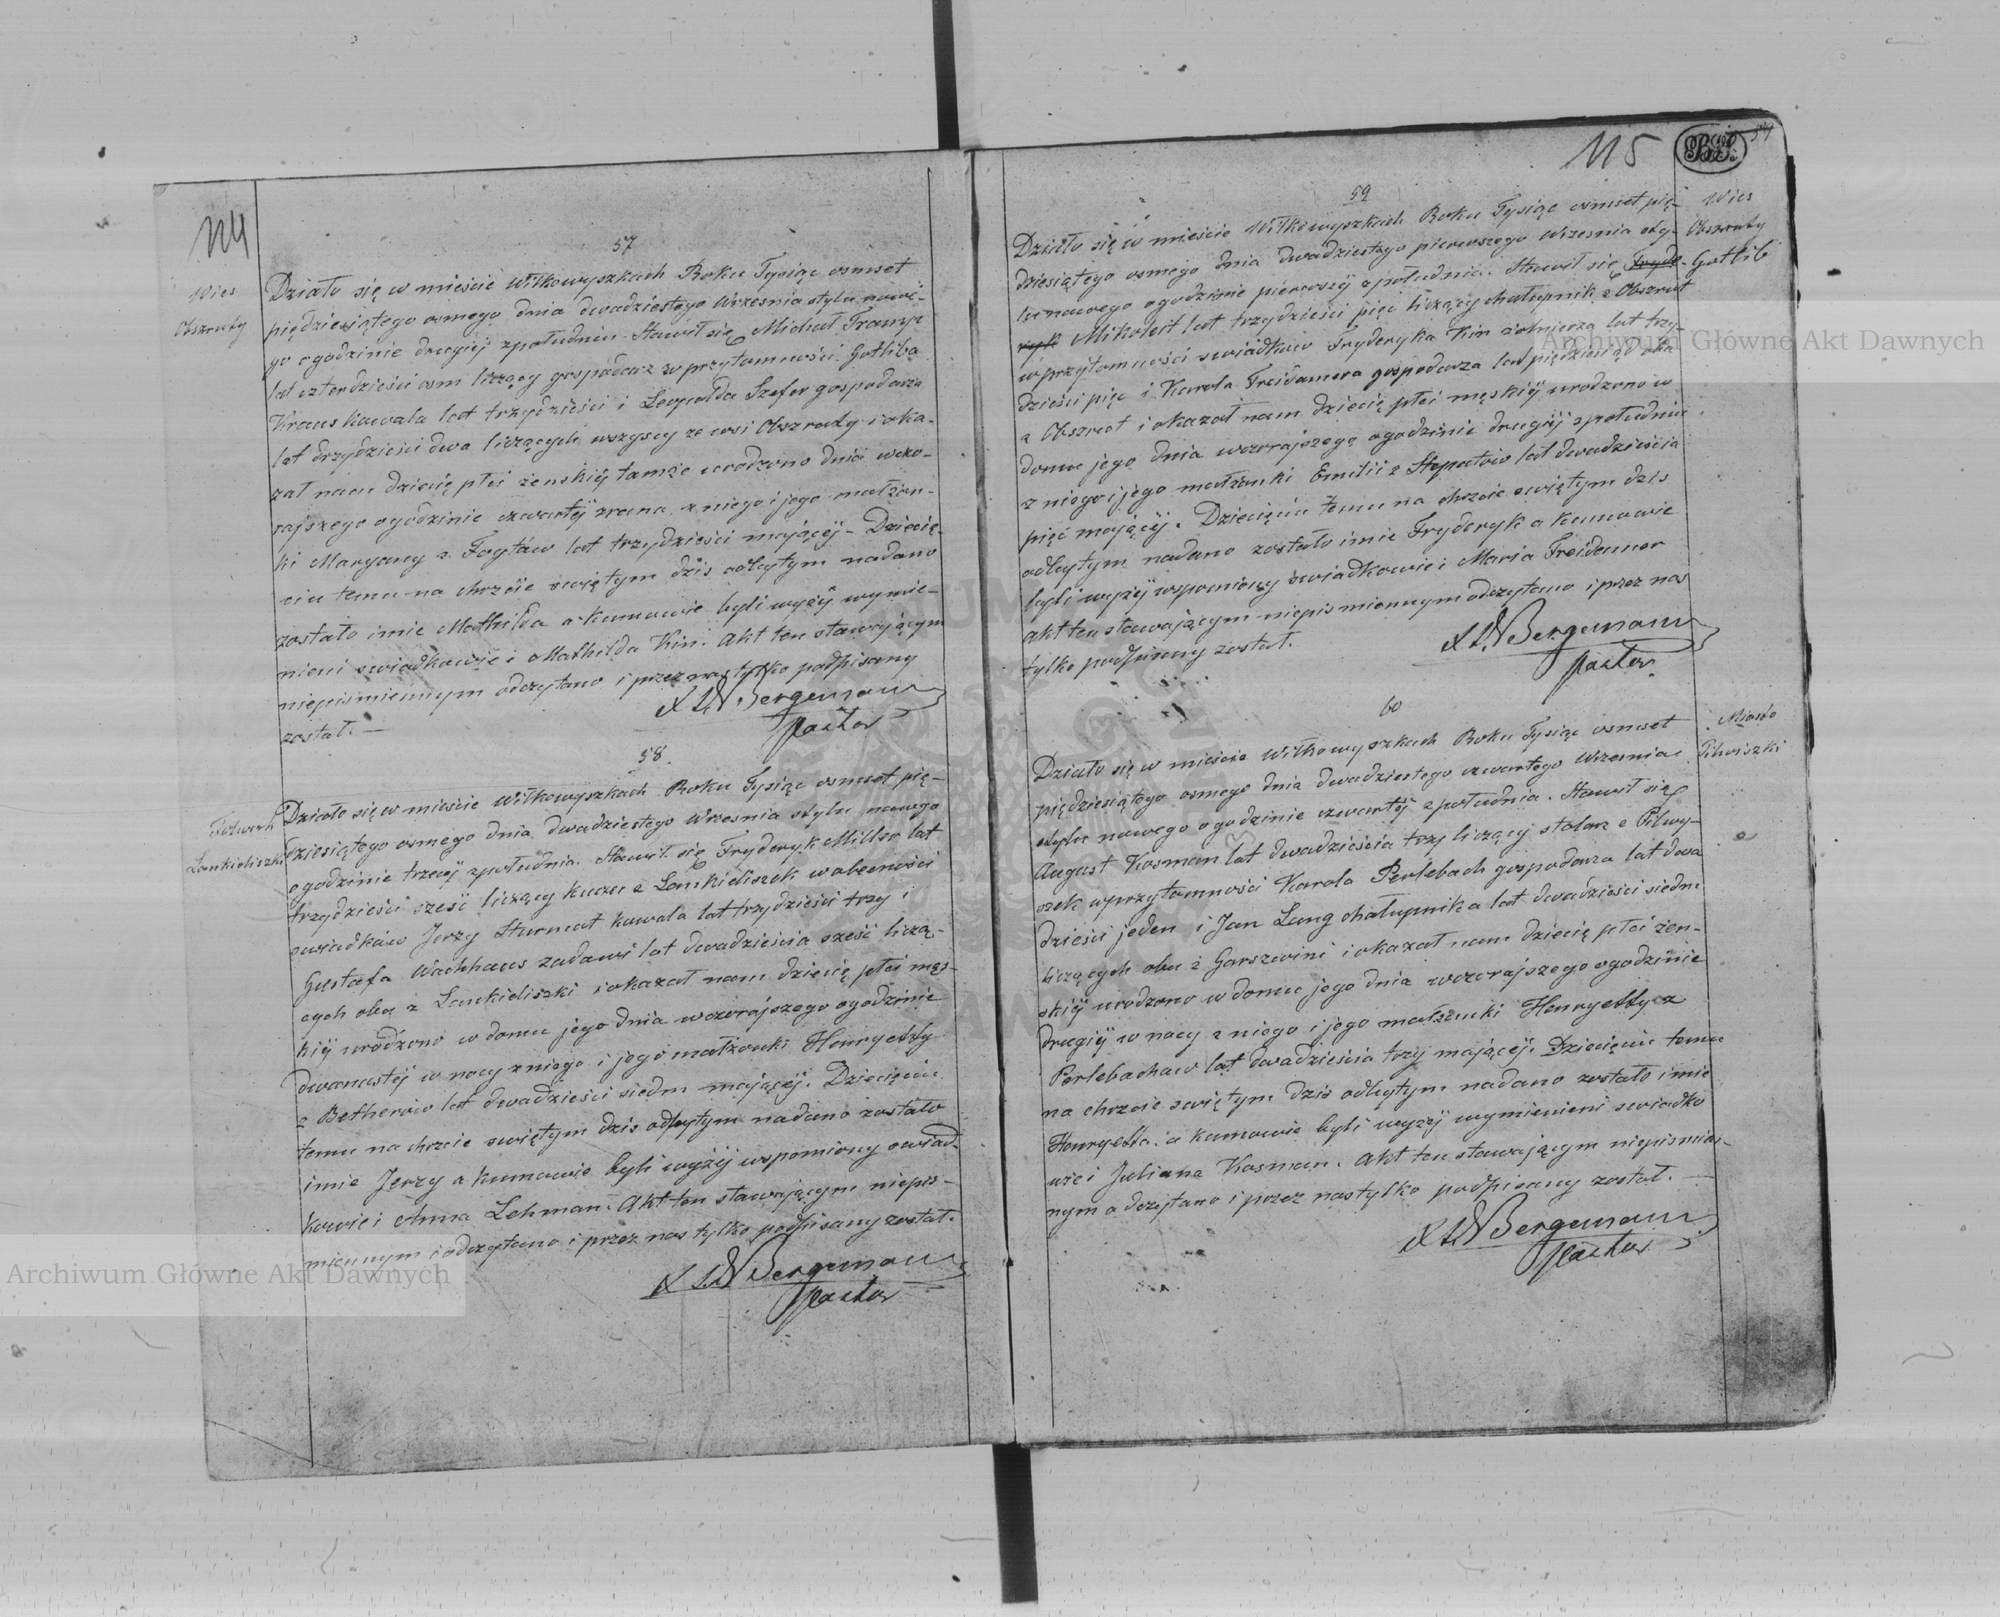 114
57
Wies
Obszruty
Działo się w mieście Wiłkowyszkach Roku Tysiąc osmset
pięćdziesiątego osmego dnia dwadziestego Wrzesnia stylu nowe-
go ogodzinie drugiej zpołudniu. Stawił się Michał
lat czterdzieści osm liczący gospodarz w przytomności Gotliba
Kraus kowala lat trzydzieści i Leopolda Szefer gospodarza
lat trzydzieści dwa liczących wszyscy ze wsi Obszruty i oka-
zał nam dziecię płci żenskiéj tamże urodzono dnia wczo-
rajszego ogodzinie czwartéj zrana z niego i jego małżon-
ki Maryany z lat trzydzieści mającéj - Dziecię-
ciu temu na chrzcie swiętym dzis odbytym nadano
zostało imie Mathilda a kumowie byli wyżéj wymie-
nieni swiadkowie i Mathilda Kin. Akt ten stawającym
niepismiennym odczytano i przez nas tylko podpisany
został. —
Bergemann
Pastor
58.
Folwark
Lankieliszki
Działo się w mieście Wiłkowyszkach Roku Tysiąc osmset pię-
dziesiątego osmego dnia dwadziestego Wrzesnia stylu nowego
ogodzinie trzecéj zpołudnia. Stawił się Fryderyk Miller lat
trzydzieści szesc liczący kuczer z Lankieliszek w obecności
swiadków Jerzy Sturmat kowala lat trzydzieści trzy i
Gustafa Wachhaus lat dwadzieścia szesć liczą-
cych oba z Lankieliszki i okazał nam dziecię płci męs-
kiéj urodzono w domu jego dnia wczorajszego ogodzinie
dwanastéj w nocy z niego i jego małżonki Henryetty
z Betherów lat dwadzieści siedm mającéj. Dziecięciu
temu na chrzcie swiętym dzis odbytym nadano zostało
imie Jerzy a kumowie byli wyżéj wspomiony swiad-
kowie i Anna Lehman. Akt ten stawającym niepis-
miennym i odczytano i przez nas tylko podpisany został.
Bergemann
Pastor
115
59
Wies
Obszruty
Działo się w mieście Wiłkowyszkach Roku Tysiąc osmset pię-
dziesiątego osmego dnia dwadziestego pierwszego Wrzesnia sty-
lu nowego ogodzinie pierwszéj zpołudnia. Stawił się Fryde- Gotlib
ryk Mikoleit lat trzydzieści pięć liczący chałupnik z Obszrut
w przytomności swiadków Fryderyka Kin żołnierza lat trzy-
dzieści pięć i Karola Freidamera gospodarza lat pięćdziesiąt oba
z Obszrut i okazał nam dziecię płci męskiéj urodzono w
domu jego dnia wczorajszego ogodzinie drugiéj zpołudniu
z niego i jego małżonki Emilii z lat dwadzieścia
pięć mającéj. Dziecięciu temu na chrzcie swiętym dzis
odbytym nadano zostało imie Fryderyk a kumowie
byli wyżéj wspomiony swiadkowie i Maria Freidamer
Akt ten stawającym niepismiennym odczytano i przez nas
tylko podpisany został.
Bergemann
Pastor
60
Miasto
Pilwiszki
Działo się w mieście Wiłkowyszkach Roku Tysiąc osmset
pięćdziesiątego osmego dnia dwadziestego czwartego Wrzesnia
stylu nowego ogodzinie czwartéj zpołudnia. Stawił się
August Kosman lat dwadzieścia trzy liczący stolarz z Pilwy-
szek wprzytomności Karola Perlebach gospodarza lat dwa
dzieści jeden i Jan Lang chałupnika lat dwadzieści siedm
liczących oba z Garszwini i okazał nam dziecię płci żen-
skiéj urodzono w domu jego dnia wczorajszego ogodzinie
drugiéj w nocy z niego i jego małżonki Henryetty z
Perlebachow lat dwadzieścia trzy mającéj. Dziecięciu temu
na chrzcie swiętym dzis odbytym nadano zostało imie
Henryetta. a kumowie byli wyżéj wymienieni swiadko
wie i Juliana Kosman. Akt ten stawającym niepismien-
nym odczytano i przez nas tylko podpisany został. —
Bergemann
Pastor
Archiwum Główne Akt Dawnych
Archiwum Główne Akt Dawnych